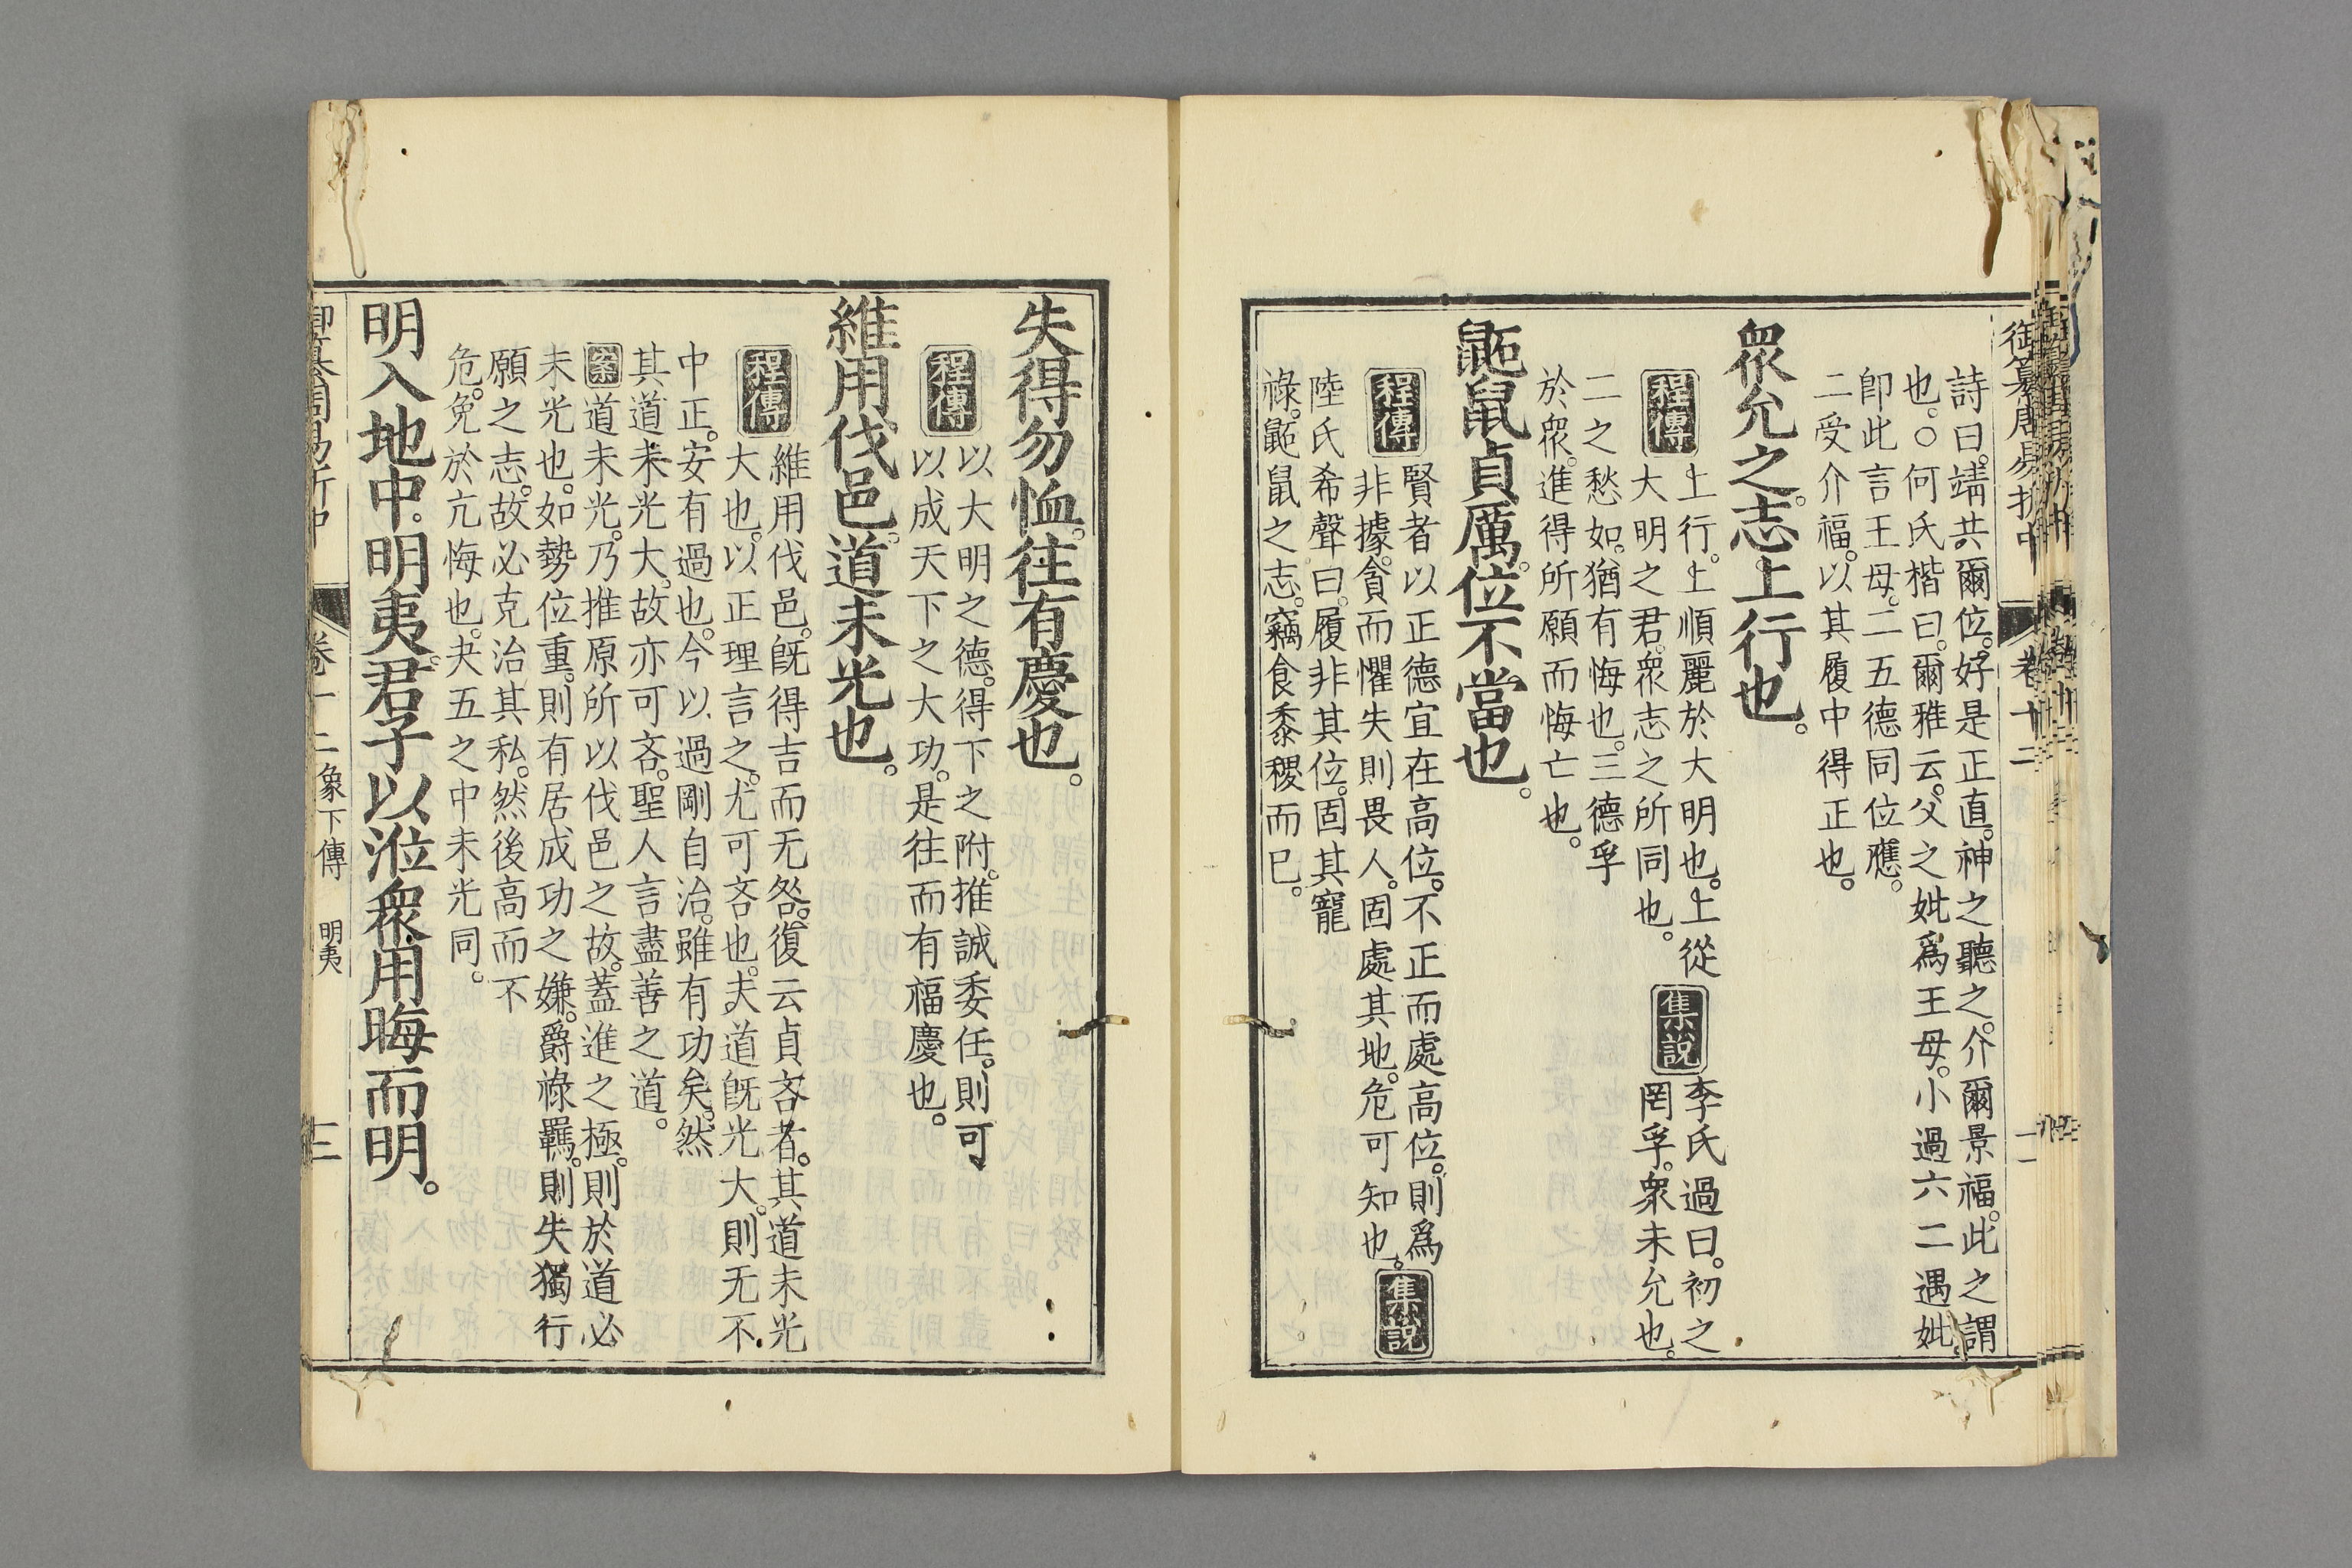 御纂周易折中　卷十二　二
詩曰。靖共爾位。好是正直。神之聽之。介爾景福。此之謂
也。○何氏楷曰。爾雅云。父之妣爲王母。小過六二遇妣。
卽此言王母。二五德同位應。
二受介福。以其履中得正也。
衆允之志。上行也。
程傳
上行。上順麗於大明也。上從
大明之君。衆志之所同也。
集說
李氏過曰。初之
罔孚。衆未允也。
二之愁如。猶有悔也。三德孚
於衆。進得所願而悔亡也。
鼫鼠貞厲。位不當也。
程傳
賢者以正德宜在高位。不正而處高位。則爲
非據。貪而懼失則畏人。固處其地。危可知也。
集說
陸氏希聲曰。履非其位。固其寵
祿。鼫鼠之志。竊食黍稷而已。
失得勿恤。往有慶也。
程傳
以大明之德。得下之附。推誠委任。則可
以成天下之大功。是往而有福慶也。
維用伐邑。道未光也。
程傳
維用伐邑。旣得吉而无咎。復云貞吝者。其道未光
大也。以正理言之。尤可吝也。夫道旣光大。則无不
中正。安有過也。今以過剛自治。雖有功矣。然
其道未光大。故亦可吝。聖人言盡善之道。
案
道未光。乃推原所以伐邑之故。蓋進之極。則於道必
未光也。如勢位重。則有居成功之嫌。爵祿羈。則失獨行
願之志。故必克治其私。然後高而不
危。免於亢悔也。夬五之中未光同。
明入地中。明夷。君子以涖衆用晦而明。
御纂周易折中　卷十二　象下傳　明夷　三